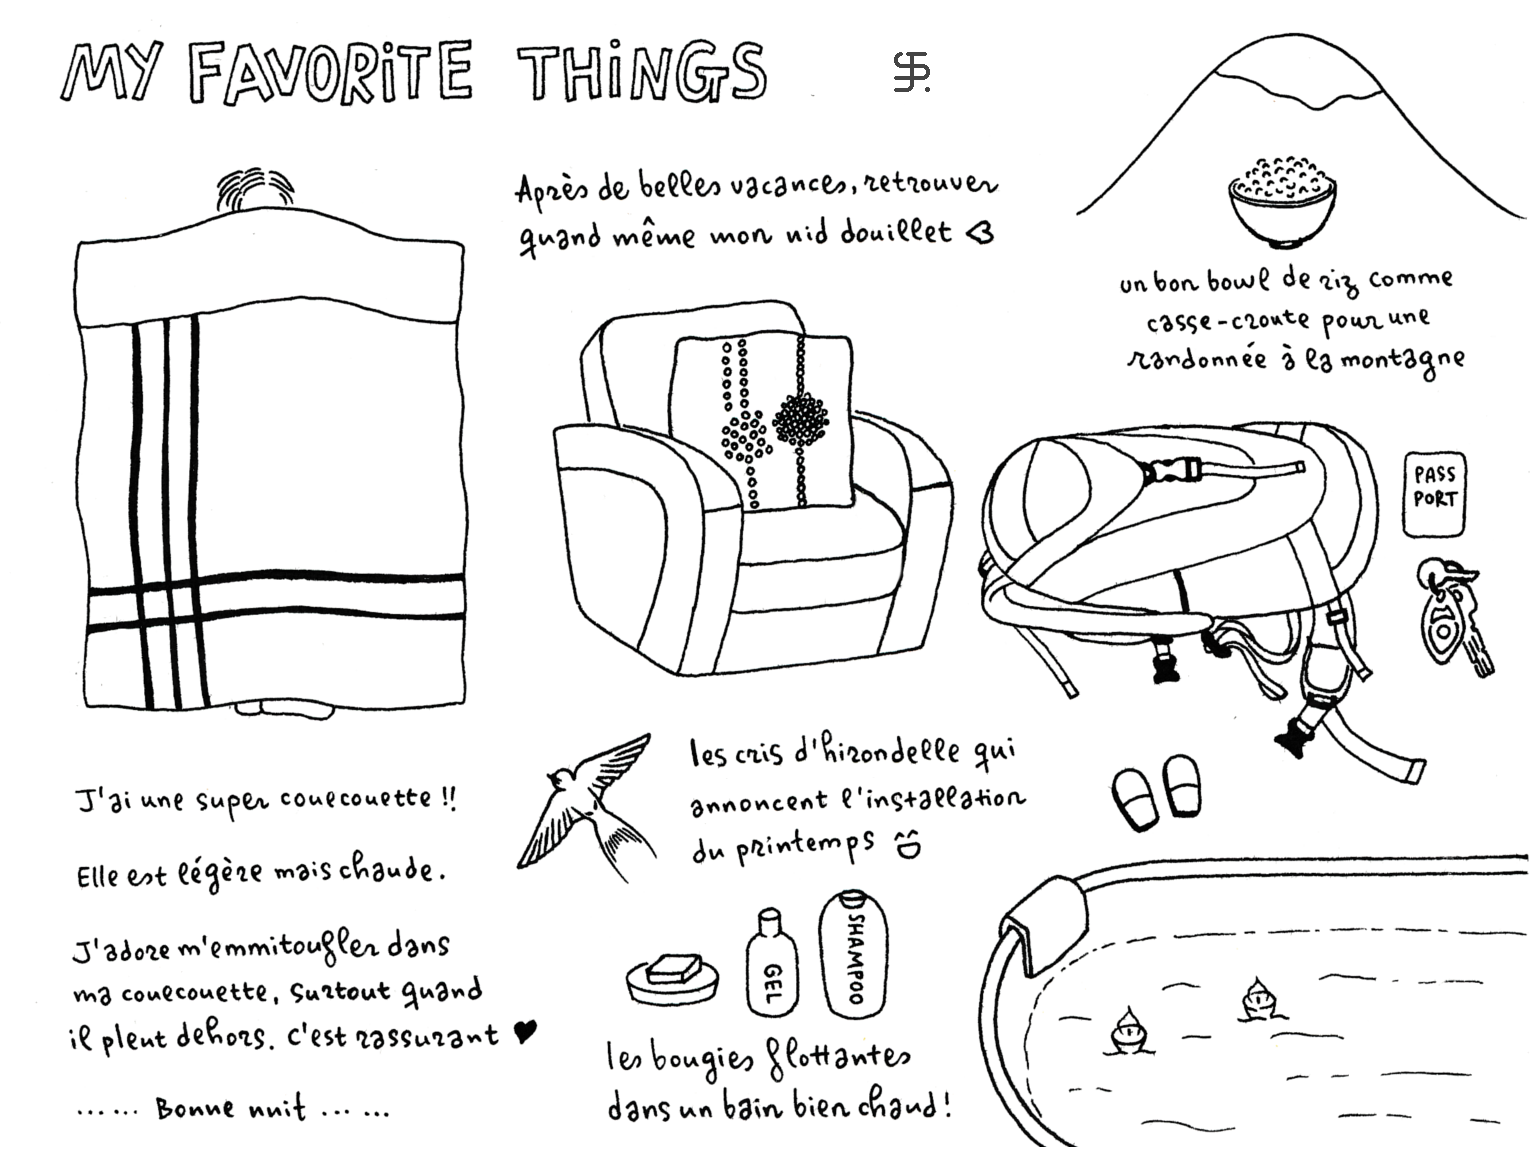 MY FAVORiTE THiNGS
Après de belles vacances, retrouver
quand même mon nid douillet <3
un bon bowl de riz comme
casse-croute pour une
randonnée à la montagne
PASS
PORT
J'ai une super couecouette !!
Elle est légère mais chaude.
J'adore m'emmitoufler dans
ma couecouette, surtout quand
il pleut dehors. C'est rassurant ♥
...... Bonne nuit ... ...
les cris d'hirondelle qui
annoncent l'installation
du printemps
GEL
SHAMPOO
les bougies flottantes
dans un bain bien chaud!